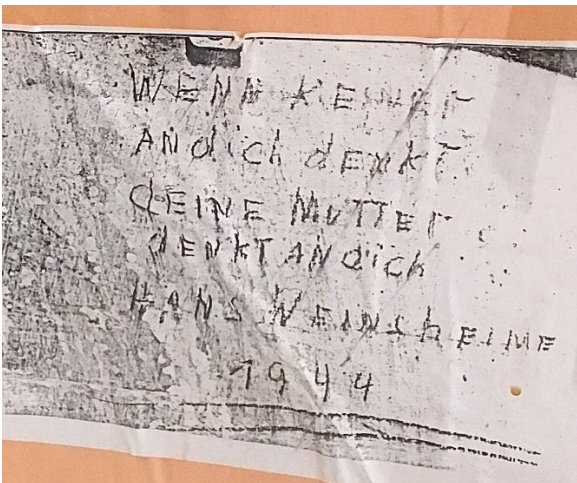 WENN KEINER
ANdich dENKT
dEINE MUTTER
dENKT AN dich
HANS WEINShEIME
1944